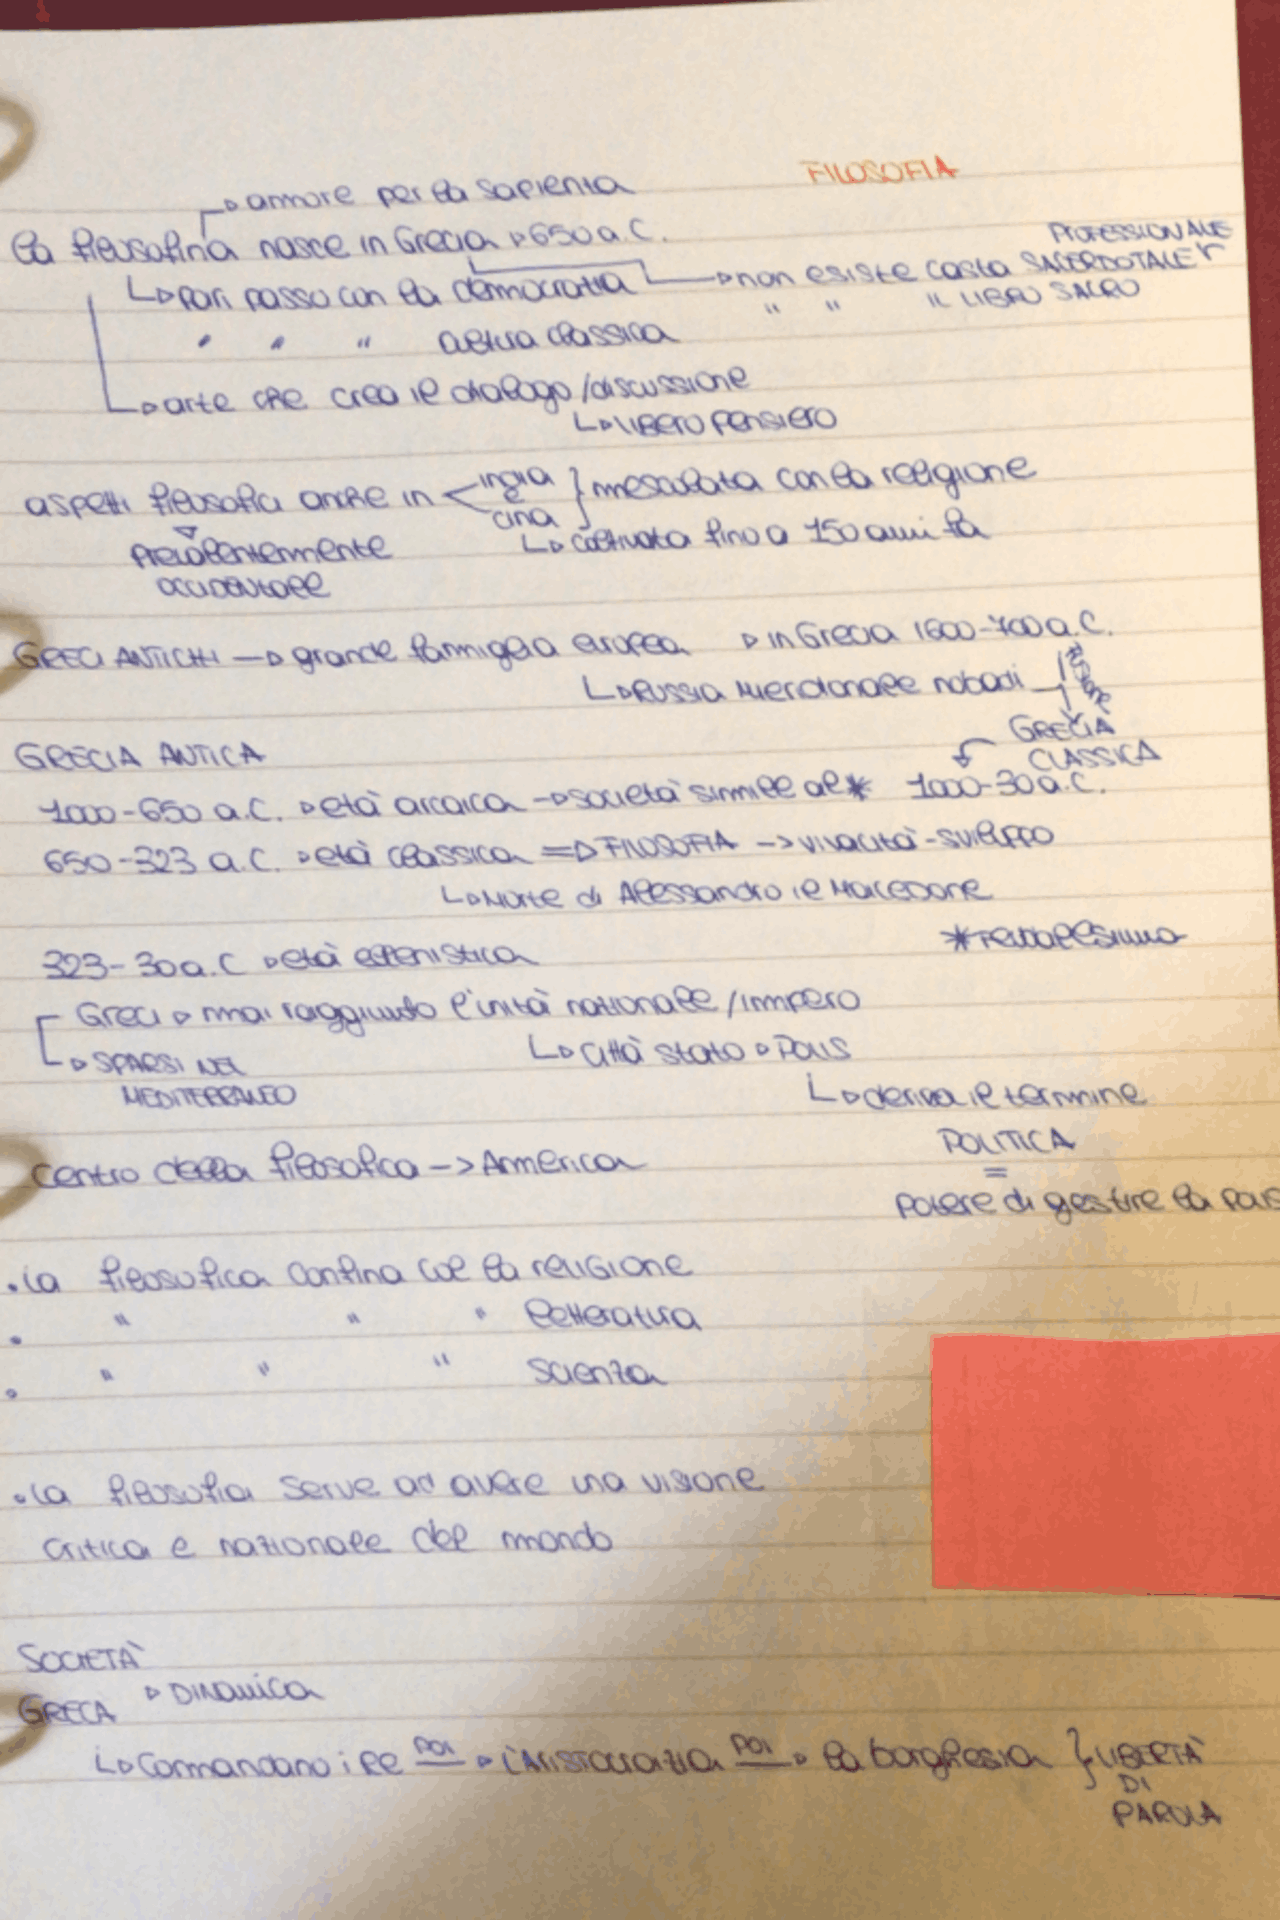 FILOSOFIA
↳ amore per la sapienza
la filosofina nasce in Grecia ▹ 650 a.C.
PROFESSIONALE
↳ pari passo con la democrazia → non esiste casta SACERDOTALE
" " IL LIBRO SACRO
" " " cultura classica
↳ arte che crea il dialogo/discussione
↳ LIBERO PENSIERO
aspetti filosofici anche in < india e cina } mescolata con la religione
prevalentemente occidentale
↳ coltivata fino a 150 anni fa
GRECI ANTICHI → grande famiglia europea ▹ in Grecia 1600-700 a.C.
↳ RUSSIA Meridionale nobadi
GRECIA CLASSICA
GRECIA ANTICA
1000-650 a.C. ▹ età arcaica → società simile al * 1000-30 a.C.
650-323 a.C. ▹ età classica => FILOSOFIA -> vivacità-sviluppo
↳ Morte di Alessandro il Macedone
* Feudalesimo
323-30 a.C ▹ età ellenistica
Greci ▹ mai raggiunto l'unità nazionale/impero
↳ SPARSI NEL MEDITERRANEO
↳ città stato ▹ POLIS
↳ deriva il termine
POLITICA
=
potere di gestire la polis
Centro della filosofica -> America
• la filosofica confina col la religione
• " " " letteratura
• " " " Scienza
• la filosofia serve ad avere una visione
critica e razionale del mondo
SOCIETÀ
GRECA ▹ DINAMICA
↳ Comandano i RE poi → L'ARISTOCRAZIA poi → la borghesia } LIBERTÀ
DI
PAROLA